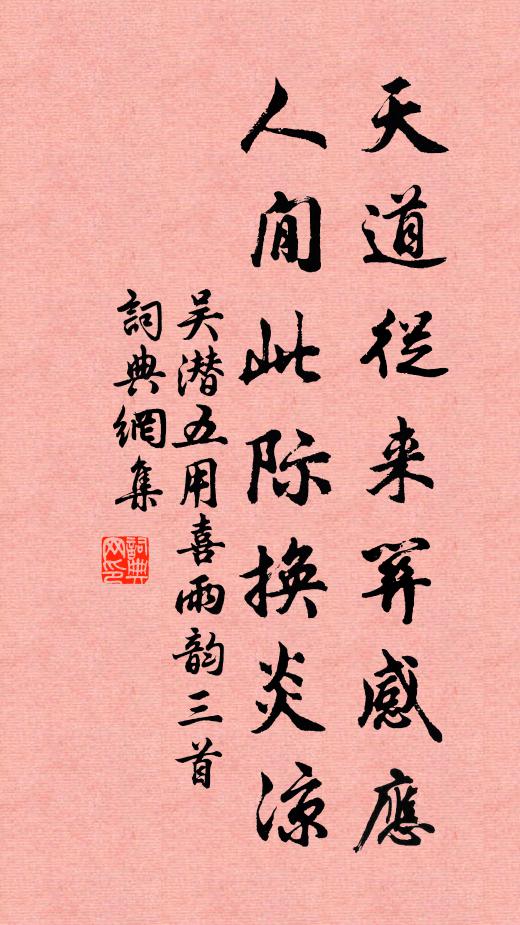 天道從来關感應
人間此际換炎涼
吴潜五用喜雨韵三首
詞典網集
詞典
网印